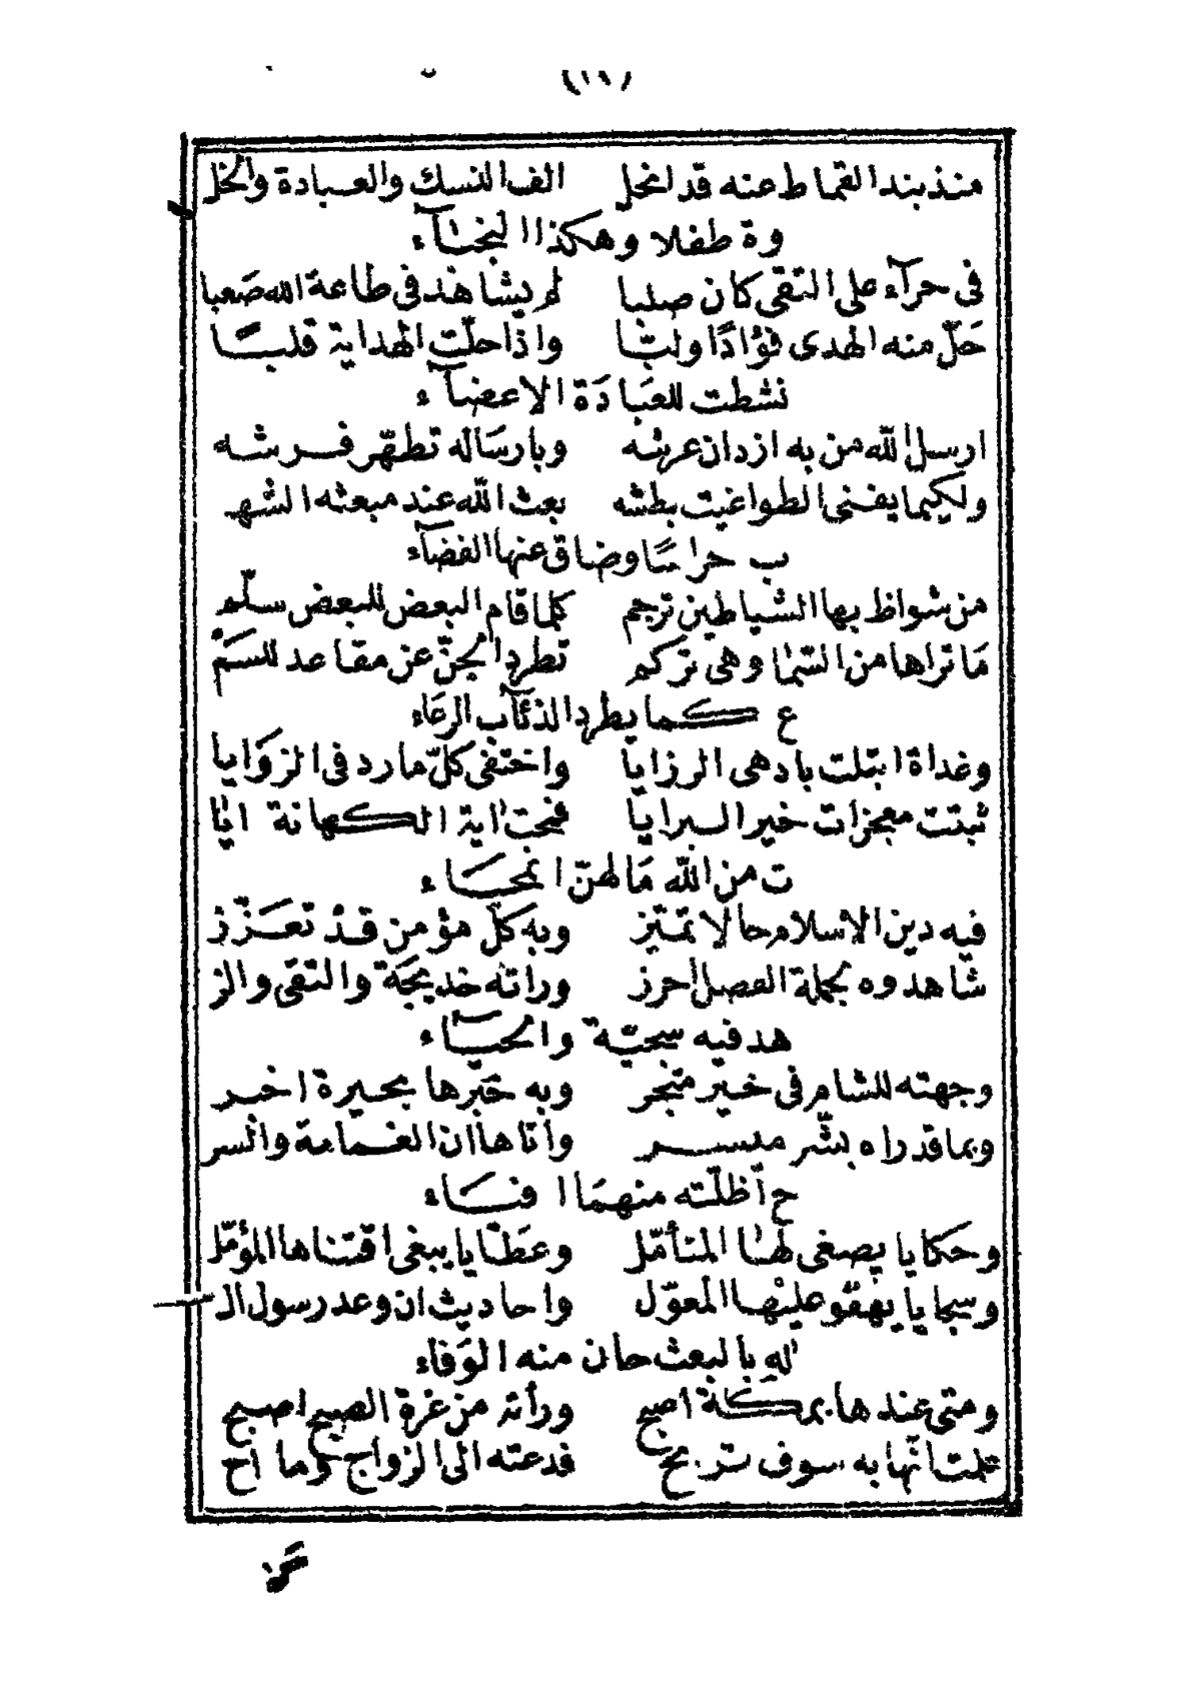 (١١)
منذ بند القماط عنه قد انحل الف النسك والعبادة والخل
وة طفلا وهكذا النجبآء
فى حرآء على التقى كان صلبا لم يشاهد فى طاعة الله صعبا
حَلّ منه الهدى فؤادًا ولبّا واذا حلّت الهداية قلبًا
نشطت للعبَادَة الاعضآء
ارسل الله من به ازدان عرشه وبارسَاله تطهّر فرشه
ولكيما يفنى الطواغيت بطشه بعث الله عند مبعثه الشهـ
ب حراسًا وضاق عنها الفضآء
من شواظ بها الشياطين ترجم كلما قام البعض للبعض سلّم
مَا تراها من السّما وهى تركم تطرد الجنّ عن مقاعد للسمْ
ع كما يطرد الذئآب الرعَاء
وغداة ابتلت بادهى الرزايا واختفى كلّ مارد فى الزوَايا
ثبتت معجزات خير البرايا فمحت اية الكهانة ايا
ت من الله مَا لهنّ انمحَاء
فيه دين الاسلام حالا تميّز وبه كلّ مؤمن قدْ تعَزّز
شاهدوه بجملة الفصل احرز وراته خديجَة والتقى والز
هد فيه سجيّة والحيآء
وجهته للشام فى خير متجر وبه حَبرها بحيرة اخبر
وبما قد راه بشّر ميسر وأتاها ان الغمامة والسر
ح أظلّته منهمَا افيَاء
وحكايا يصغى لهَا المتأمّل وعَطايا يبغى اقتناها المؤمّل
وسجايا يهفو عليْها المعوّل واحاديث ان وعد رسول ال
له بالبعث حان منه الوَفاء
ومتى عندها بمكة اصبح ورأته من غرة الصبح اصبح
علمت انّها به سوف تربح فدعته الى الزواج وما اح